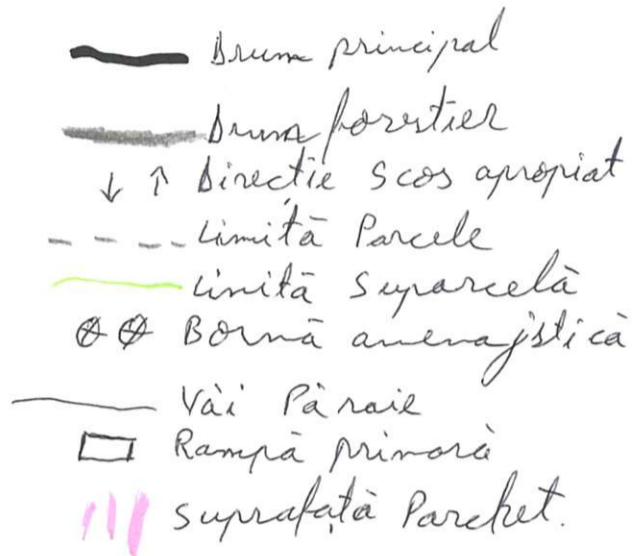 Drum principal
Drum forestier
Direcție Scos apropiat
Limită Parcele
Limită Suparcelă
Bornă amenajistică
Văi Pâraie
Rampă primară
Suprafață Parchet.